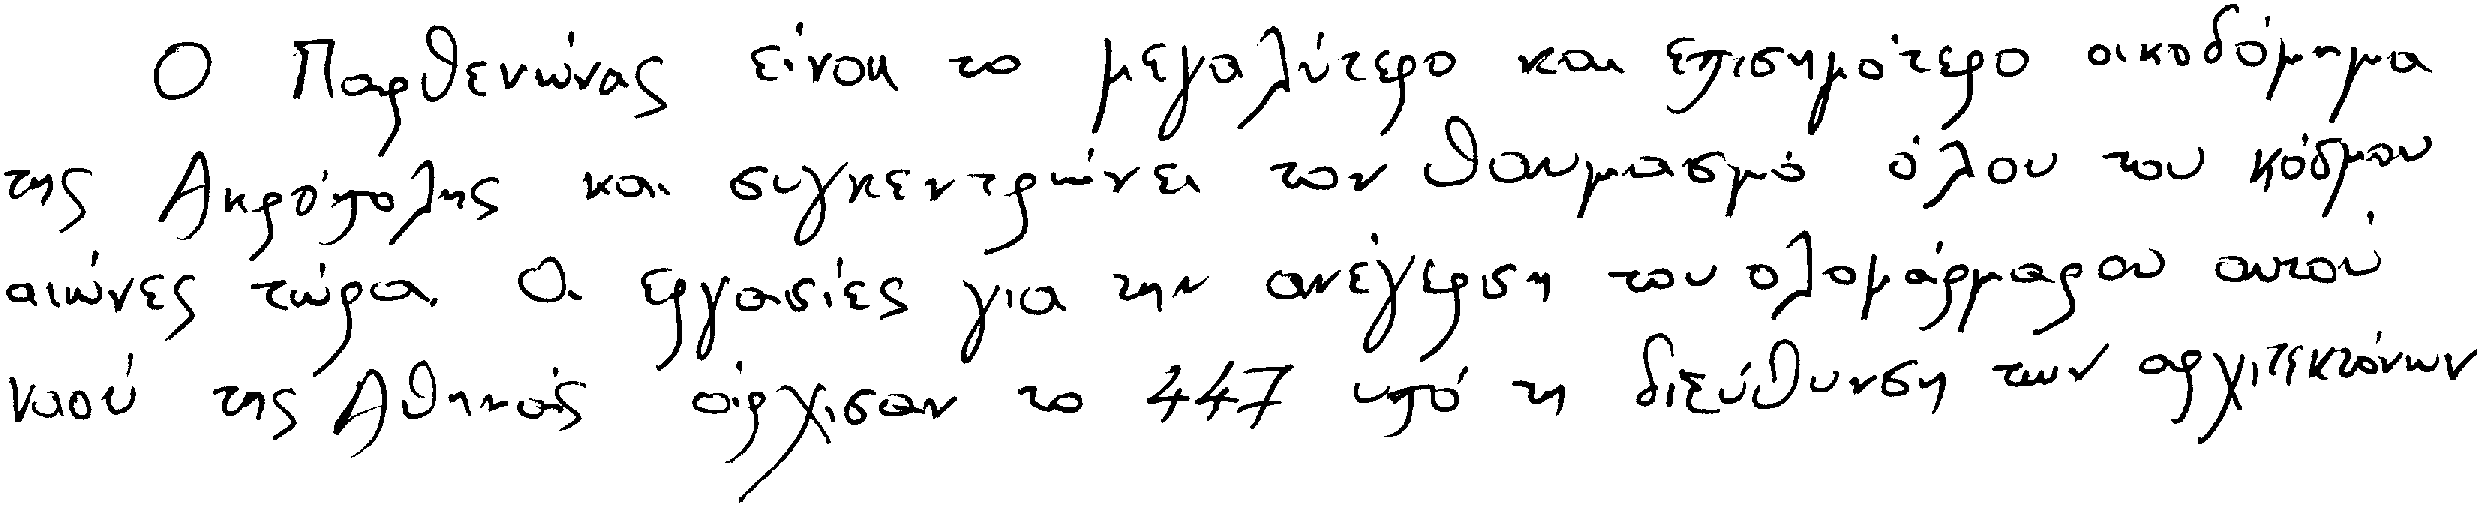 Ο Παρθενώνας είναι το μεγαλύτερο και επισημότερο οικοδόμημα
της Ακρόπολης και συγκεντρώνει τον θαυμασμό όλου του κόσμου
αιώνες τώρα. Οι εργασίες για την ανέγερση του ολομάρμαρου αυτού
ναού της Αθηνάς άρχισαν το 447 υπό τη διεύθυνση των αρχιτεκτόνων